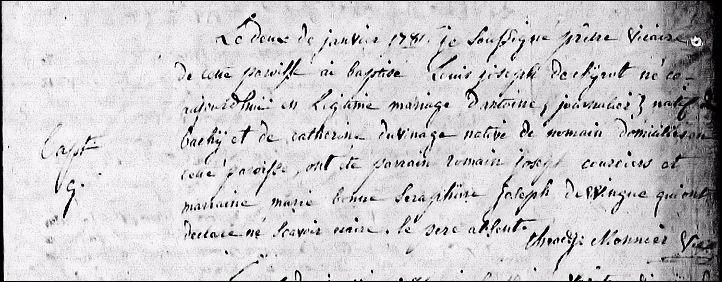 Le deux de janvier 1781 je Soussigné prêtre vicaire
de cette paroisse ai baptisé Louis joseph né ce
aujourdhui en Légitime mariage d'antoine, journalier natif de
bachÿ et de catherine duvinage native de nomain domiciliés en
cette paroisse, ont été parrain romain joseph et
marraine marie bonne Seraphine Joseph qui ont
declaré ne scavoir ecrire. le pere absent.
Monnier Vic
Bapt
9.